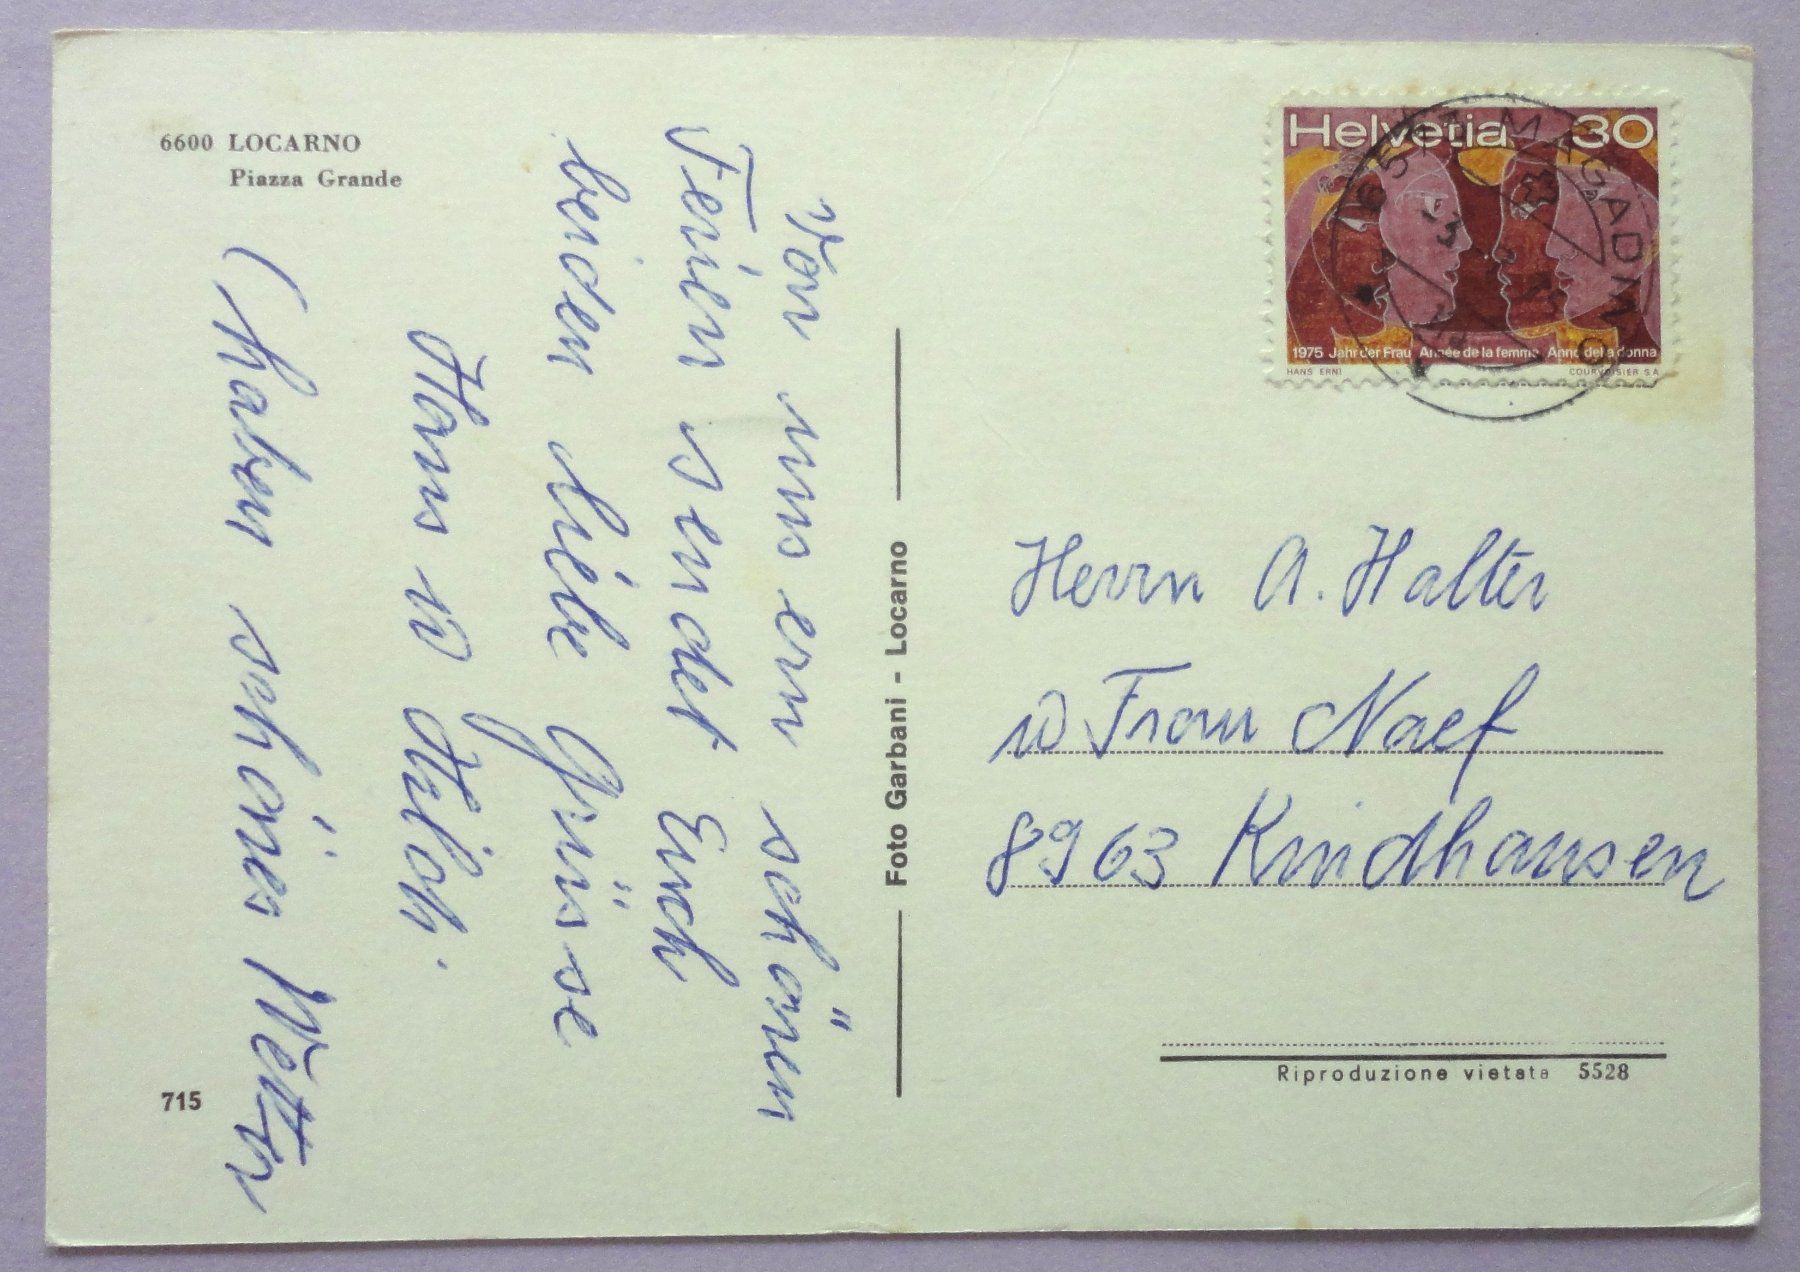 6600 LOCARNO
Piazza Grande
Von unsern schönen
Ferien sendet Euch
beiden liebe Grüsse
Hans u
(haben schönes Wetter
715
Foto Garbani - Locarno
Helvetia 30
1975 Jahr der Frau Année de la femme Anno della donna
HANS ERNI COURVOISIER S.A
MAGADINO
Herrn A. Halter
u Frau Naef
8963 Kindhausen
Riproduzione vietata 5528